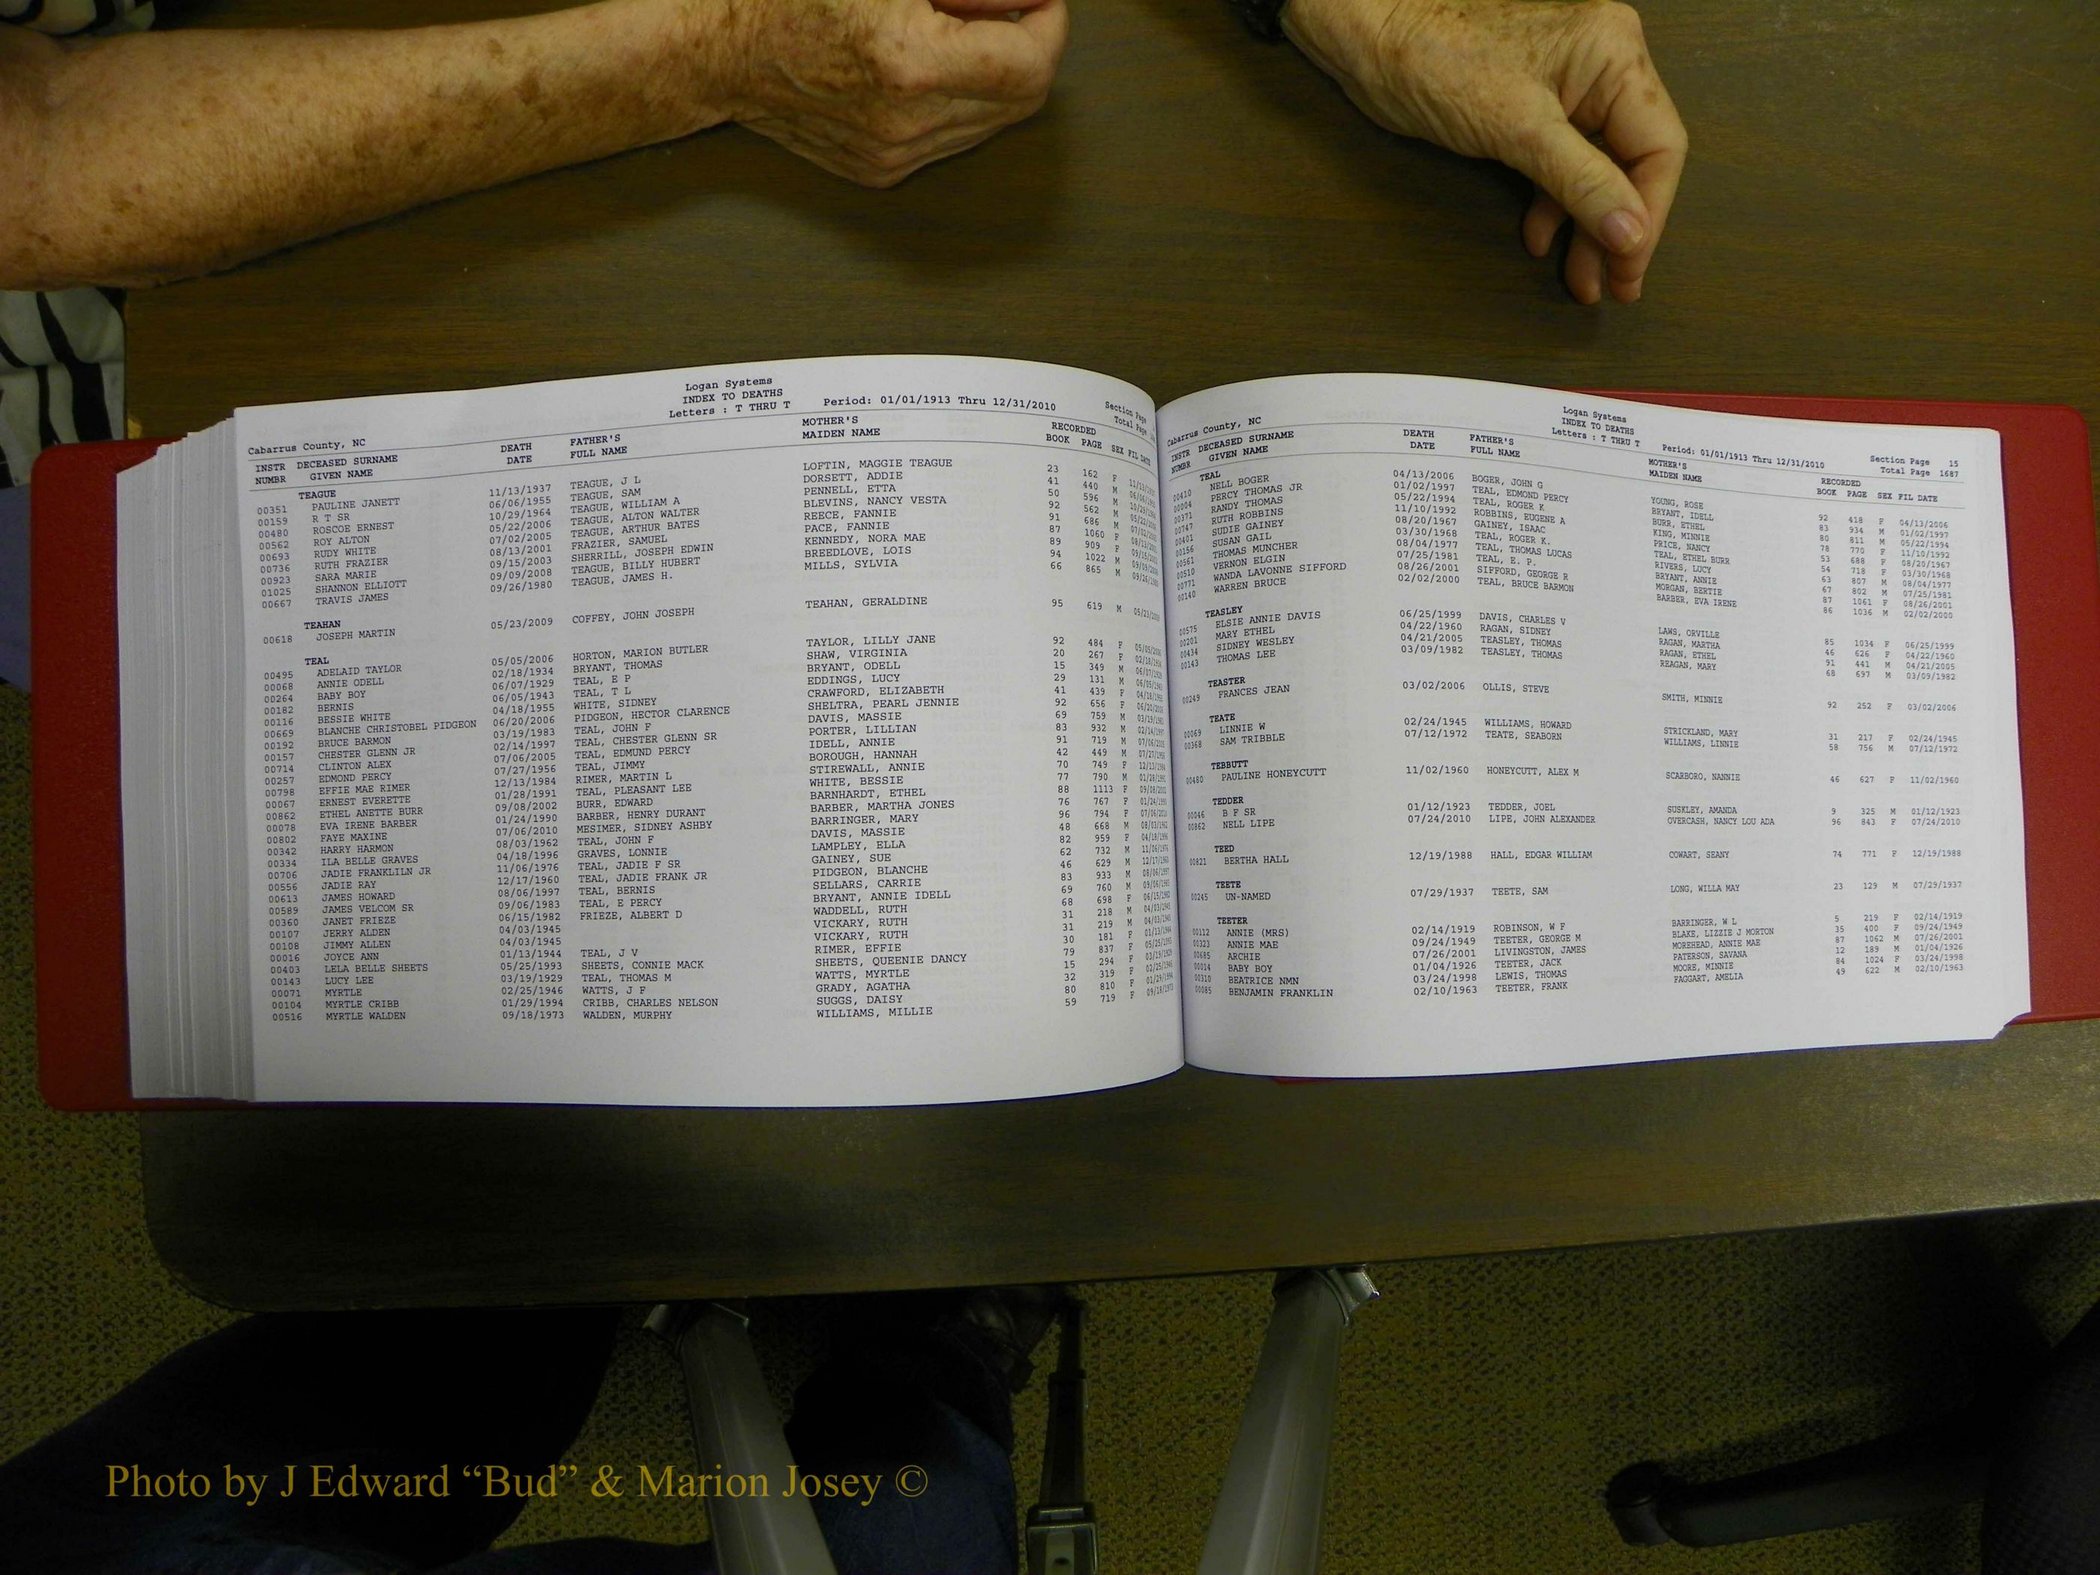 Logan Systems
INDEX TO DEATHS
Letters : T THRU T Period: 01/01/1913 Thru 12/31/2010 Section Page
Cabarrus County, NC Total Page
INSTR DECEASED SURNAME DEATH FATHER'S MOTHER'S RECORDED
NUMBR GIVEN NAME DATE FULL NAME MAIDEN NAME BOOK PAGE SEX FIL DATE
TEAGUE
00351 PAULINE JANETT 11/13/1937 TEAGUE, J L LOFTIN, MAGGIE TEAGUE 23 162 F
00159 R T SR 06/06/1955 TEAGUE, SAM DORSETT, ADDIE 41 440 M
00480 ROSCOE ERNEST 10/29/1964 TEAGUE, WILLIAM A PENNELL, ETTA 50 596 M
00562 ROY ALTON 05/22/2006 TEAGUE, ALTON WALTER BLEVINS, NANCY VESTA 92 562 M
00693 RUDY WHITE 07/02/2005 TEAGUE, ARTHUR BATES REECE, FANNIE 91 686 M
00736 RUTH FRAZIER 08/13/2001 FRAZIER, SAMUEL PACE, FANNIE 87 1060 F
00923 SARA MARIE 09/15/2003 SHERRILL, JOSEPH EDWIN KENNEDY, NORA MAE 89 909 F
01025 SHANNON ELLIOTT 09/09/2008 TEAGUE, BILLY HUBERT BREEDLOVE, LOIS 94 1022 M
00667 TRAVIS JAMES 09/26/1980 TEAGUE, JAMES H. MILLS, SYLVIA 66 865 M
TEAHAN
00618 JOSEPH MARTIN 05/23/2009 COFFEY, JOHN JOSEPH TEAHAN, GERALDINE 95 619 M 05/23/2009
TEAL
00495 ADELAID TAYLOR 05/05/2006 HORTON, MARION BUTLER TAYLOR, LILLY JANE 92 484 F 05/05/2006
00068 ANNIE ODELL 02/18/1934 BRYANT, THOMAS SHAW, VIRGINIA 20 267 F
00264 BABY BOY 06/07/1929 TEAL, E P BRYANT, ODELL 15 349 M
00182 BERNIS 06/05/1943 TEAL, T L EDDINGS, LUCY 29 131 M
00116 BESSIE WHITE 04/18/1955 WHITE, SIDNEY CRAWFORD, ELIZABETH 41 439 F
00669 BLANCHE CHRISTOBEL PIDGEON 06/20/2006 PIDGEON, HECTOR CLARENCE SHELTRA, PEARL JENNIE 92 656 F
00192 BRUCE BARMON 03/19/1983 TEAL, JOHN F DAVIS, MASSIE 69 759 M
00157 CHESTER GLENN JR 02/14/1997 TEAL, CHESTER GLENN SR PORTER, LILLIAN 83 932 M
00714 CLINTON ALEX 07/06/2005 TEAL, EDMUND PERCY IDELL, ANNIE 91 719 M
00257 EDMOND PERCY 07/27/1956 TEAL, JIMMY BOROUGH, HANNAH 42 449 M
00798 EFFIE MAE RIMER 12/13/1984 RIMER, MARTIN L STIREWALL, ANNIE 70 749 F
00067 ERNEST EVERETTE 01/28/1991 TEAL, PLEASANT LEE WHITE, BESSIE 77 790 M
00862 ETHEL ANETTE BURR 09/08/2002 BURR, EDWARD BARNHARDT, ETHEL 88 1113 F
00078 EVA IRENE BARBER 01/24/1990 BARBER, HENRY DURANT BARBER, MARTHA JONES 76 767 F
00802 FAYE MAXINE 07/06/2010 MESIMER, SIDNEY ASHBY BARRINGER, MARY 96 794 F
00342 HARRY HARMON 08/03/1962 TEAL, JOHN F DAVIS, MASSIE 48 668 M
00334 ILA BELLE GRAVES 04/18/1996 GRAVES, LONNIE LAMPLEY, ELLA 82 959 F
00706 JADIE FRANKLILN JR 11/06/1976 TEAL, JADIE F SR GAINEY, SUE 62 732 M
00556 JADIE RAY 12/17/1960 TEAL, JADIE FRANK JR PIDGEON, BLANCHE 46 629 M
00613 JAMES HOWARD 08/06/1997 TEAL, BERNIS SELLARS, CARRIE 83 933 M
00589 JAMES VELCOM SR 09/06/1983 TEAL, E PERCY BRYANT, ANNIE IDELL 69 760 M
00360 JANET FRIEZE 06/15/1982 FRIEZE, ALBERT D WADDELL, RUTH 68 698 F
00107 JERRY ALDEN 04/03/1945 VICKARY, RUTH 31 218 M
00108 JIMMY ALLEN 04/03/1945 VICKARY, RUTH 31 219 M
00016 JOYCE ANN 01/13/1944 TEAL, J V RIMER, EFFIE 30 181 F
00403 LELA BELLE SHEETS 05/25/1993 SHEETS, CONNIE MACK SHEETS, QUEENIE DANCY 79 837 F
00143 LUCY LEE 03/19/1929 TEAL, THOMAS M WATTS, MYRTLE 15 294 F
00071 MYRTLE 02/25/1946 WATTS, J F GRADY, AGATHA 32 319 F
00104 MYRTLE CRIBB 01/29/1994 CRIBB, CHARLES NELSON SUGGS, DAISY 80 810 F
00516 MYRTLE WALDEN 09/18/1973 WALDEN, MURPHY WILLIAMS, MILLIE 59 719 F 09/18/1973
Logan Systems
INDEX TO DEATHS
Letters : T THRU T Period: 01/01/1913 Thru 12/31/2010 Section Page 15
Cabarrus County, NC Total Page 1687
INSTR DECEASED SURNAME DEATH FATHER'S MOTHER'S RECORDED
NUMBR GIVEN NAME DATE FULL NAME MAIDEN NAME BOOK PAGE SEX FIL DATE
TEAL
00410 NELL BOGER 04/13/2006 BOGER, JOHN G YOUNG, ROSE 92 418 F 04/13/2006
00004 PERCY THOMAS JR 01/02/1997 TEAL, EDMOND PERCY BRYANT, IDELL 83 934 M 01/02/1997
00371 RANDY THOMAS 05/22/1994 TEAL, ROGER K BURR, ETHEL 80 811 M 05/22/1994
00747 RUTH ROBBINS 11/10/1992 ROBBINS, EUGENE A KING, MINNIE 78 770 F 11/10/1992
00401 SUDIE GAINEY 08/20/1967 GAINEY, ISAAC PRICE, NANCY 53 688 F 08/20/1967
00156 SUSAN GAIL 03/30/1968 TEAL, ROGER K. TEAL, ETHEL BURR 54 718 F 03/30/1968
00561 THOMAS MUNCHER 08/04/1977 TEAL, THOMAS LUCAS RIVERS, LUCY 63 807 M 08/04/1977
00510 VERNON ELGIN 07/25/1981 TEAL, E. P. BRYANT, ANNIE 67 802 M 07/25/1981
00771 WANDA LAVONNE SIFFORD 08/26/2001 SIFFORD, GEORGE R MORGAN, BERTIE 87 1061 F 08/26/2001
00140 WARREN BRUCE 02/02/2000 TEAL, BRUCE BARMON BARBER, EVA IRENE 86 1036 M 02/02/2000
TEASLEY
00575 ELSIE ANNIE DAVIS 06/25/1999 DAVIS, CHARLES V LAWS, ORVILLE 85 1034 F 06/25/1999
00201 MARY ETHEL 04/22/1960 RAGAN, SIDNEY RAGAN, MARTHA 46 626 F 04/22/1960
00434 SIDNEY WESLEY 04/21/2005 TEASLEY, THOMAS RAGAN, ETHEL 91 441 M 04/21/2005
00143 THOMAS LEE 03/09/1982 TEASLEY, THOMAS REAGAN, MARY 68 697 M 03/09/1982
TEASTER
00249 FRANCES JEAN 03/02/2006 OLLIS, STEVE SMITH, MINNIE 92 252 F 03/02/2006
TEATE
00069 LINNIE W 02/24/1945 WILLIAMS, HOWARD STRICKLAND, MARY 31 217 F 02/24/1945
00368 SAM TRIBBLE 07/12/1972 TEATE, SEABORN WILLIAMS, LINNIE 58 756 M 07/12/1972
TEBBUTT
00480 PAULINE HONEYCUTT 11/02/1960 HONEYCUTT, ALEX M SCARBORO, NANNIE 46 627 F 11/02/1960
TEDDER
00046 B F SR 01/12/1923 TEDDER, JOEL SUSKLEY, AMANDA 9 325 M 01/12/1923
00862 NELL LIPE 07/24/2010 LIPE, JOHN ALEXANDER OVERCASH, NANCY LOU ADA 96 843 F 07/24/2010
TEED
00821 BERTHA HALL 12/19/1988 HALL, EDGAR WILLIAM COWART, SEANY 74 771 F 12/19/1988
TEETE
00245 UN-NAMED 07/29/1937 TEETE, SAM LONG, WILLA MAY 23 129 M 07/29/1937
TEETER
00112 ANNIE (MRS) 02/14/1919 ROBINSON, W F BARRINGER, W L 5 219 F 02/14/1919
00323 ANNIE MAE 09/24/1949 TEETER, GEORGE M BLAKE, LIZZIE J MORTON 35 400 F 09/24/1949
00685 ARCHIE 07/26/2001 LIVINGSTON, JAMES MOREHEAD, ANNIE MAE 87 1062 M 07/26/2001
00014 BABY BOY 01/04/1926 TEETER, JACK PATERSON, SAVANA 12 189 M 01/04/1926
00310 BEATRICE NMN 03/24/1998 LEWIS, THOMAS MOORE, MINNIE 84 1024 F 03/24/1998
00085 BENJAMIN FRANKLIN 02/10/1963 TEETER, FRANK FAGGART, AMELIA 49 622 M 02/10/1963
Photo by J Edward “Bud” & Marion Josey ©